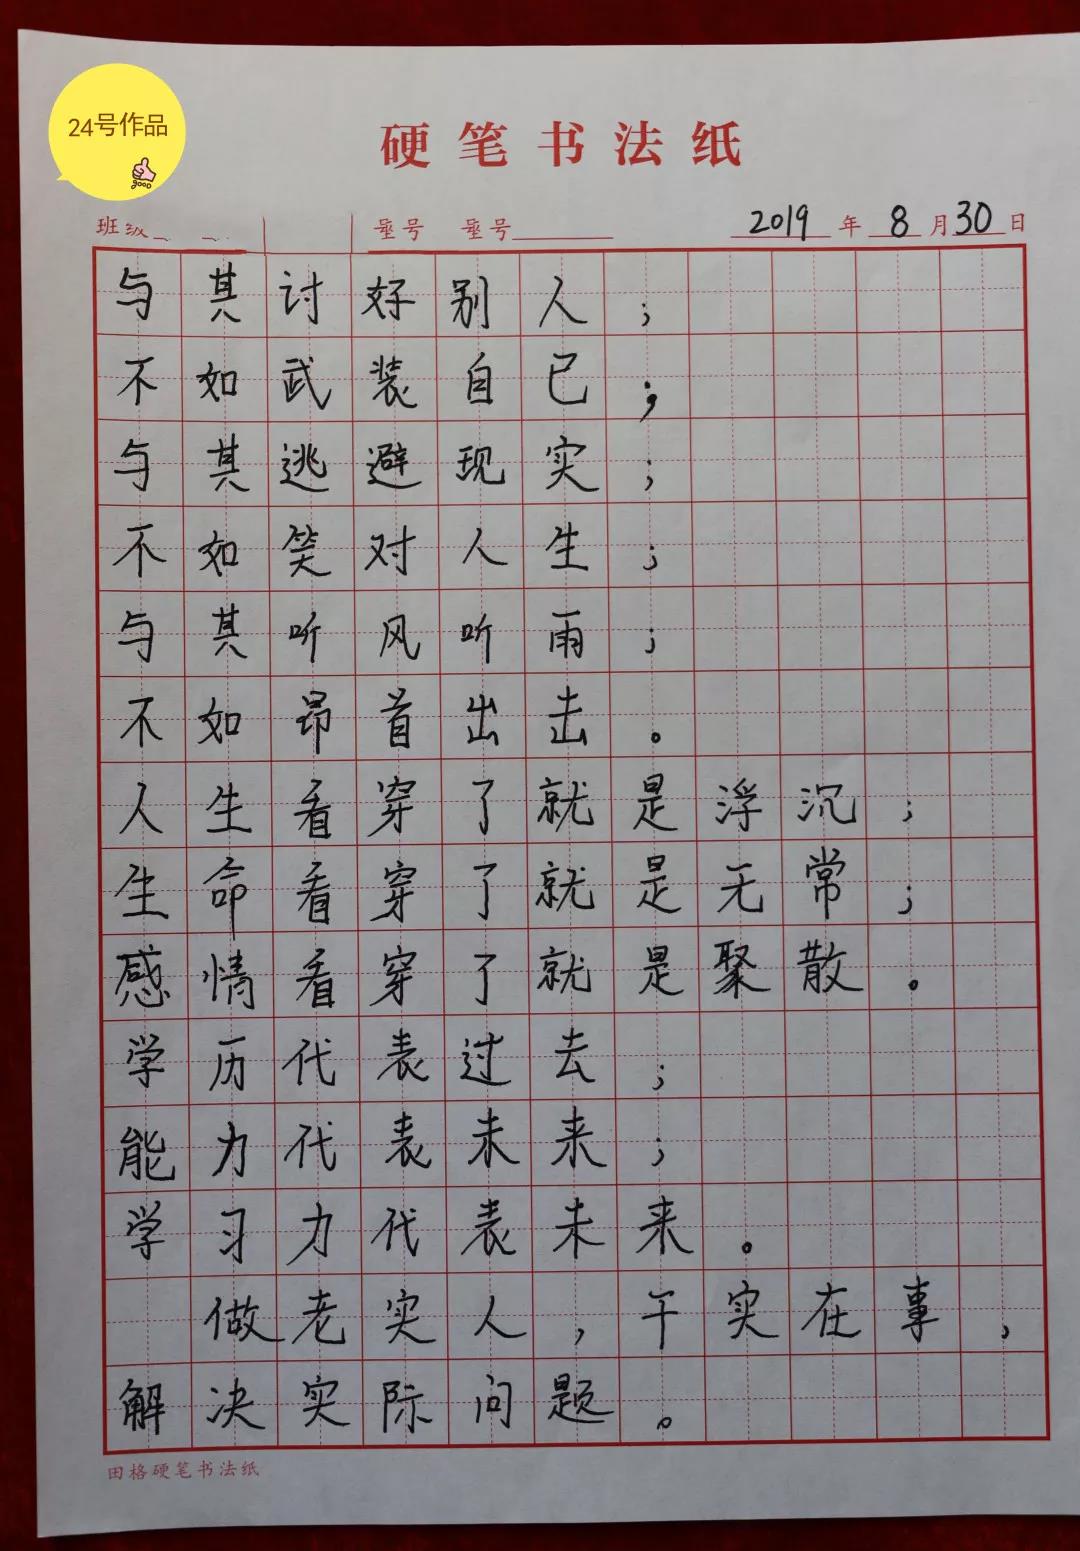 24号作品
good
硬笔书法纸
班级 座号 座号 2019年8月30日
与其讨好别人；
不如武装自己；
与其逃避现实；
不如笑对人生；
与其听风听雨；
不如昂首出击。
人生看穿了就是浮沉；
生命看穿了就是无常；
感情看穿了就是聚散。
学历代表过去；
能力代表未来；
学习力代表未来。
做老实人，干实在事，
解决实际问题。
田格硬笔书法纸